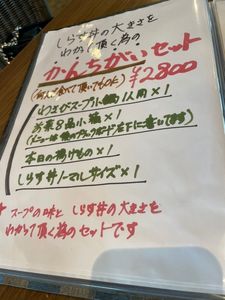 しらす丼の大きさを
わかって頂く為の
かんちがいセット
¥2800
わさびスープ小鍋1人用×1
お菜8品小福×1
(メニューは横のブラックボード左下に書いてます)
本日の揚げもの×1
しらす丼ノーマルサイズ×1
★スープの味としらす丼の大きさを
わかって頂く為のセットです